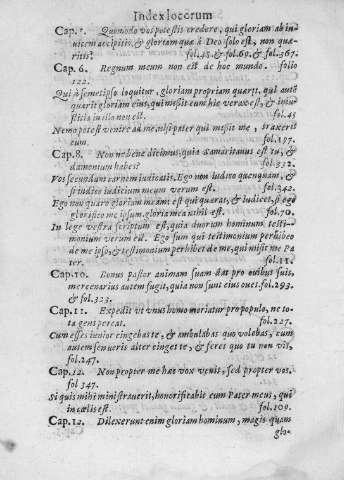 Index locorum
Cap. 5. Quomodo vos potestis credere, qui gloriam ab in-
uicem accipitis, & gloriam quæ à Deo solo est, non quæ-
ritis? fol.45 & fol.69. & fol.367.
Cap. 6. Regnum meum non est de hoc mundo. folio
122.
Qui à semetipso loquitur, gloriam propriam quærit, qui autē
quærit gloriam eius, qui misit eum hic verax est, & iniu-
stitia in illo non est. fol.45
Nemo potest venire ad me, nisi pater qui misit me, traxerit
eum. fol.197.
Cap. 8. Non ne bene dicimus, quia samaritanus est tu, &
dæmonium habes? fol.322.
Vos secundum carnem iudicatis. Ego non iudico quenquam, &
si iudico iudicium meum verum est. fol.242.
Ego non quæro gloriam meam: est qui quærat, & iudicet, si ego
glorifico me ipsum, gloria mea nihil est. fol.70.
In lege vestra scriptum est, quia duorum hominum testi-
monium verum est. Ego sum qui testimonium perhibeo
de me ipso, & testimonium perhibet de me, qui misit me Pa-
ter. fol.11.
Cap. 10. Bonus pastor animam suam dat pro ouibus suis,
mercenarius autem fugit, quia non sunt eius oues. fol.293.
& fol.323.
Cap. 11. Expedit vt vnus homo moriatur pro populo, ne to-
ta gens pereat. fol.227.
Cum esses iunior cingebas te, & ambulabas quo volebas, cum
autem senueris alter cinget te, & feret quo tu non vis,
fol.247.
Cap. 12. Non propter me hæc vox venit, sed propter vos.
fol 347.
Si quis mihi ministrauerit, honorificabit eum Pater meus, qui
in cœlis est. fol.109.
Cap. 12. Dilexerunt enim gloriam hominum, magis quam
glo-